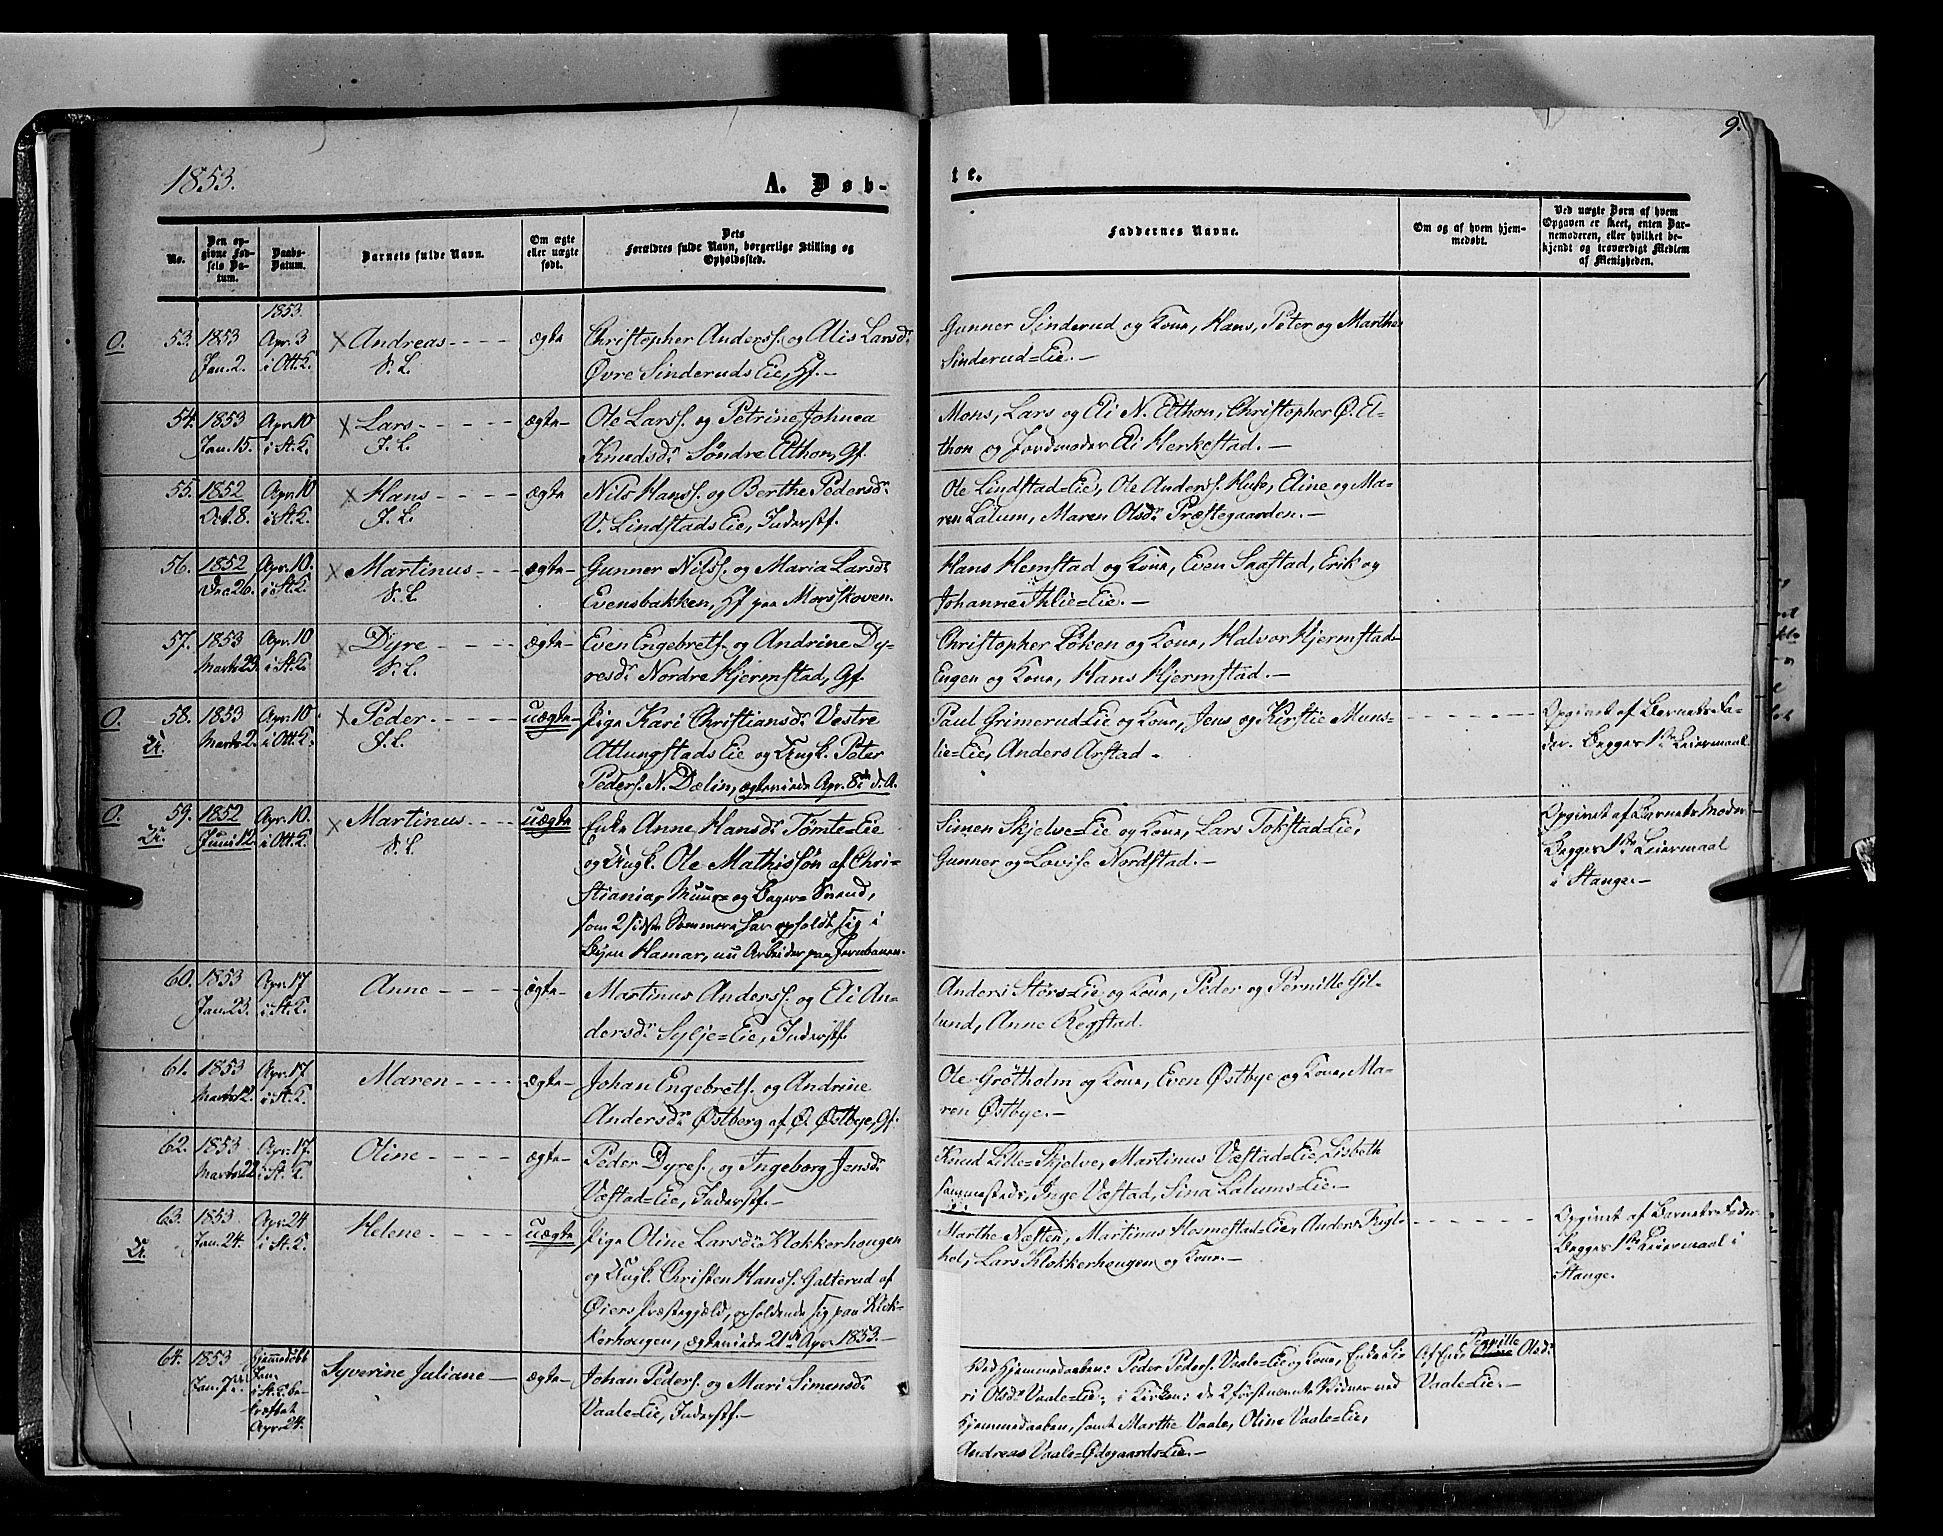 9.
1853.
A. Døb-
te.
No.
Den op-
givne Fød-
sels Da-
tum.
Daabs-
Datum.
Barnets fulde Navn.
Om ægte
eller uægte
født.
Dets
Forældres fulde Navn, borgerlige Stilling og
Opholdssted.
Faddernes Navne.
Om og af hvem hjem-
medøbt.
Ved uægte Børn af hvem
Opgaven er skeet, enten Bar-
nemoderen, eller hvilket be-
kjendt og troværdigt Medlem
af Menigheden.
1853.
O. 53. 1853 Apr. 3 Andreas ægte Christopher Anderss. og Alis Larsdr
Jan. 2. i Ott.K. S. L. Øvre Sinderuds Eie, Hf.
Gunner Sinderud og Kone, Hans, Peter og Marthe
Sinderud=Eie.
54. 1853 Apr. 10 Lars ægte Ole Larss. og Petrine Johnea
Jan. 15. i St.K. J. L. Knudsdr Søndre Atthon, Gf.
Mons, Lars og Eli N. Atthon, Christopher Ø. At-
thon og Jordmoder Eli Herkestad.
55. 1852 Apr. 10 Hans ægte Nils Hanss. og Berthe Pedersdr
Oct. 8. i St.K. J. L. V. Lindstads Eie, Inderstf.
Ole Lindstad=Eie, Ole Anderss. Huse, Eline og Ma-
ren Lalum, Maren Olsdr Præstegaarden.
56. 1852 Apr. 10. Martinus ægte Gunner Nilss. og Maria Larsdr
Dec. 26. i St.K. S. L. Evensbakken, Hf paa Morskoven.
Hans Hemstad og Kone, Even Saastad, Erik og
Johanne Thlie=Eie.
57. 1853 Apr. 10 Dyre ægte Even Engebrets. og Andrine Dy-
Marts 23. i St.K. S. L. resdr Nordre Hjermstad, Gf.
Christopher Løken og Kone, Halvor Hjermstad-
Engen og Kone, Hans Hjermstad.
O. 58. 1853 Apr. 10 Peder uægte Pige Kari Christiansdr Vestre
U. Marts 2. i Ott.K. S. L. Attlungstads Eie og Ungk. Peter
Peders. N. Dælin, ægteviede Apr. 8de d. A.
Paul Grimerud=Eie og Kone, Jens og Kirstie Muns-
lie=Eie, Anders Arstad.
Opgivet af Barnets Fa-
der. Begges 1ste Leiermaal.
O. 59. 1852 Apr. 10. Martinus uægte Enke Anne Hansdr Tømte=Eie
U. Juni 12. i Ott.K. S. L. og Ungk. Ole Mathissøn af Chri-
stiania, Muur= og Bager=Svend,
som 2 sidste Sommere har opholdt sig i
Byen Hamar, nu Arbeider paa Jernbanen.
Simen Skjelve=Eie og Kone, Lars Tokstad=Eie,
Gunner og Lovise Nordstad.
Opgivet af Barnets Moder.
Begges 1ste Leiermaal
i Stange.
60. 1853 Apr. 17 Anne ægte Martinus Anderss. og Eli An-
Jan. 23. i St.K. dersdr Sylje=Eie, Inderstf.
Anders Stórs=Eie og Kone, Peder og Pernille Gil-
lund, Anne Regstad.
61. 1853 Apr. 17 Maren ægte Johan Engebrets. og Andrine
Marts 12. i St.K. Andersdr Østberg af Ø. Østbye, Gf.
Ole Grötholm og Kone, Even Østbye og Kone, Ma-
ren Østbye.
62. 1853 Apr. 17. Oline ægte Peder Dyres. og Ingeborg Jensdr
Marts 22. i St.K. Væstad=Eie, Inderstf.
Knud Lille=Skjelve, Martinus Væstad=Eie, Lisbeth
sammesteds, Inge Væstad, Sina Lalums=Eie.
63. 1853 Apr. 24 Helene uægte Pige Oline Larsdr Klokkerhaugen
U. Jan. 24. i St.K. og Ungk. Christen Hanss. Galterud af
Øiers Præstegjeld, opholdende sig paa Klok-
kerhaugen, ægteviede 21de Apr. 1853.
Marthe Næsten, Martinus Hosmestad=Eie, Anders Fugl-
hol, Lars Klokkerhaugen og Kone.
Opgivet af Barnets Fader
Begges 1ste Leiermaal i
Stange.
64. 1853 Hjemmedöbt Syverine Juliane ægte Johan Peders. og Mari Simensdr
Jan. 7de. Jan. i St.K. be- Vaale=Eie, Inderstf.
kræftet
Apr. 24.
Ved Hjemmedaaben: Peder Peders. Vaale=Eie og Kone, Enke Si-
ri Olsdr Vaale=Eie; i Kirken: de 2 förstnævnte Vidner ved
Hjemmedaaben, samt Marthe Vaale, Oline Vaale=Eie,
Andreas Vaale=Ødegaards=Eie.
Af Enke Pernille Olsdr
Vaale=Eie.